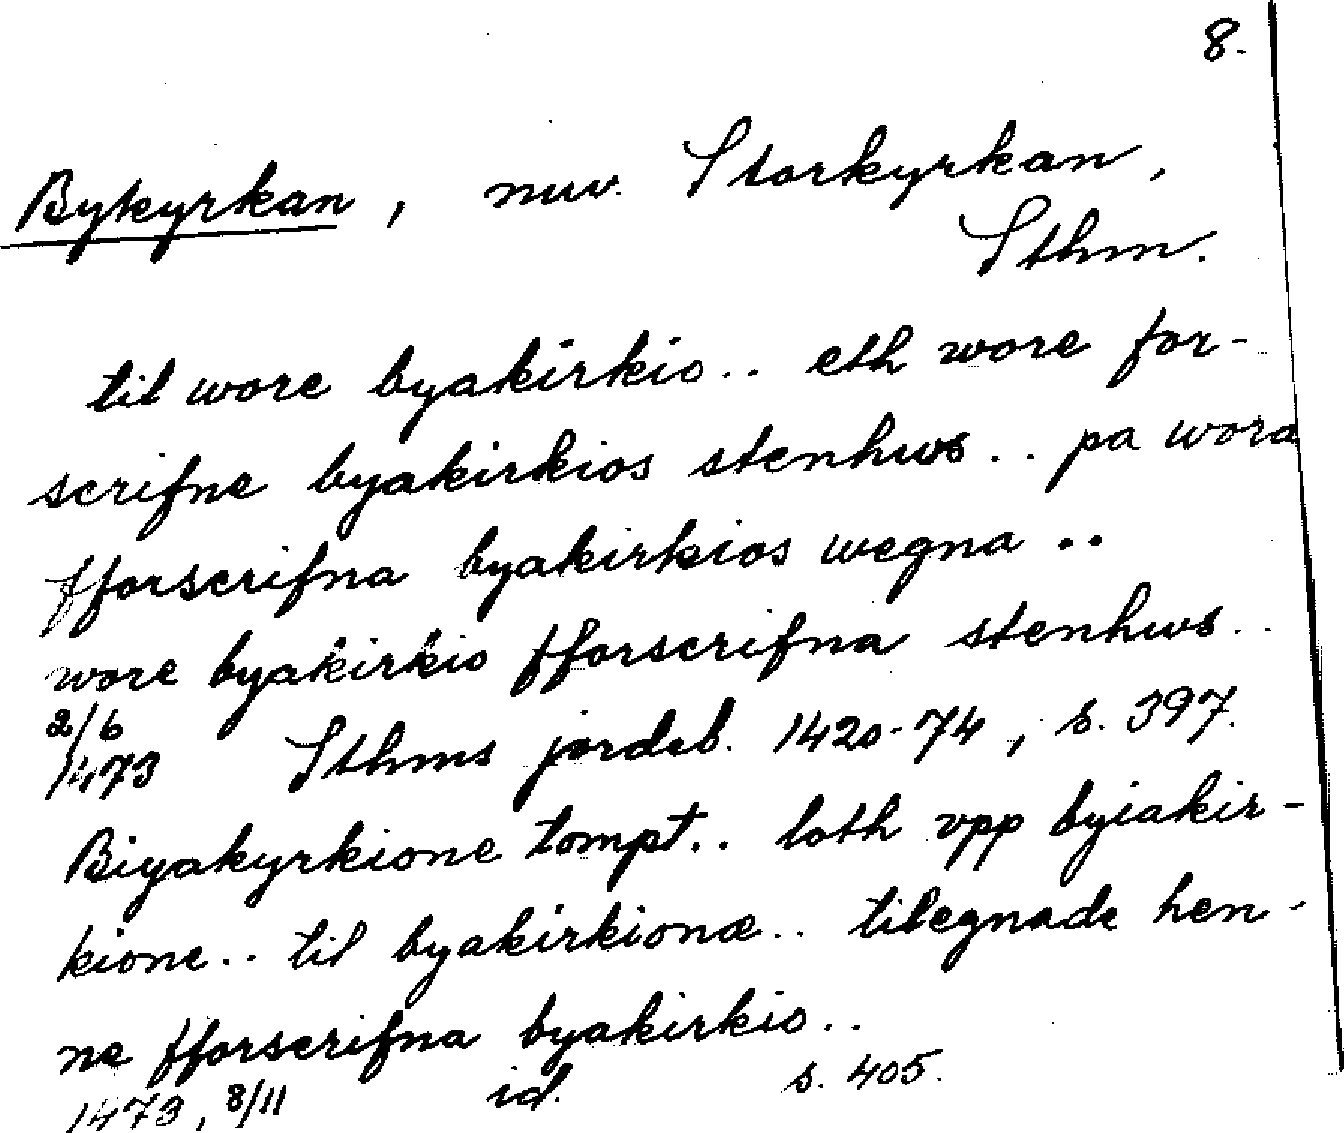 8.
Bykyrkan, nuv. Storkyrkan,
Sthm.
til wore byakirkio.. eth wore for-
scrifne byakirkios stenhws.. pa wora
fforscrifna byakirkios wegna ..
wore byakirkio fforscrifna stenhws..
2/6
1473 Sthms jordeb. 1420-74, s. 397.
Biyakyrkione tompt.. loth vpp byiakir-
kione.. til byakirkionæ.. tilegnade hen-
ne fforscrifna byakirkio..
1473, 8/11 id. s. 405.